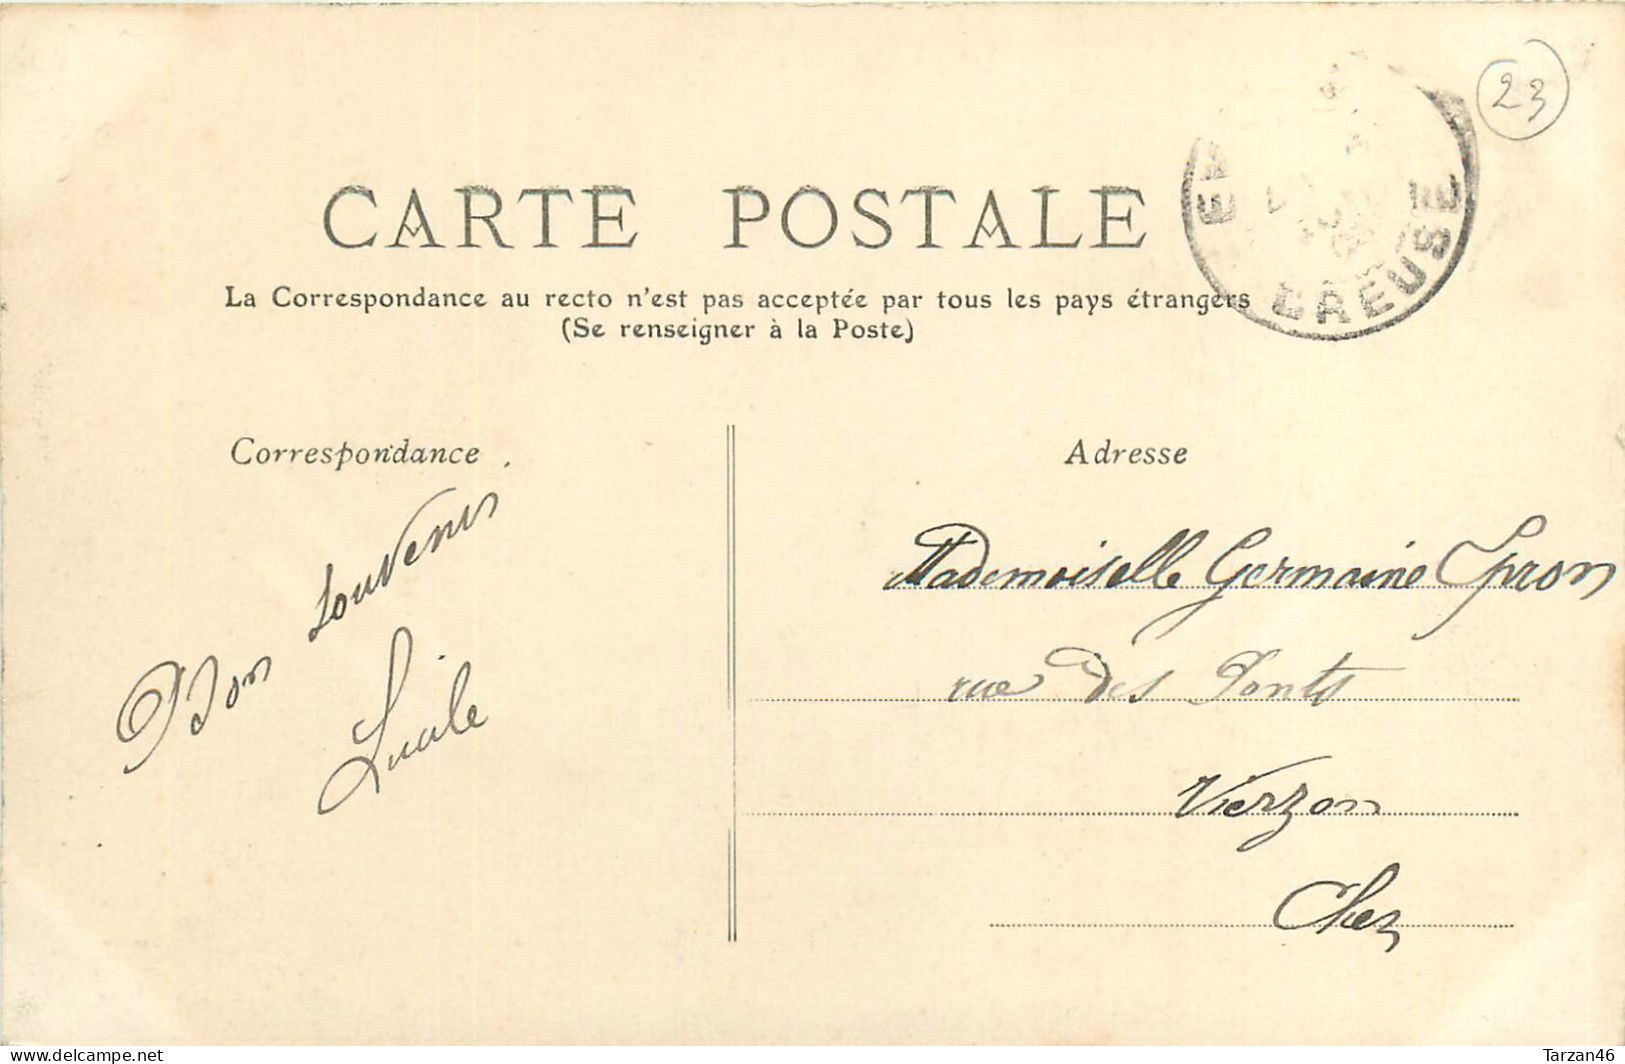 23
CARTE POSTALE
La Correspondance au recto n'est pas acceptée par tous les pays étrangers
(Se renseigner à la Poste)
CREUSE
Correspondance
Adresse
Bon souvenir
Lucile
Mademoiselle Germaine
rue des Ponts
Vierzon
Cher
website:delcampe.net
Tarzan46